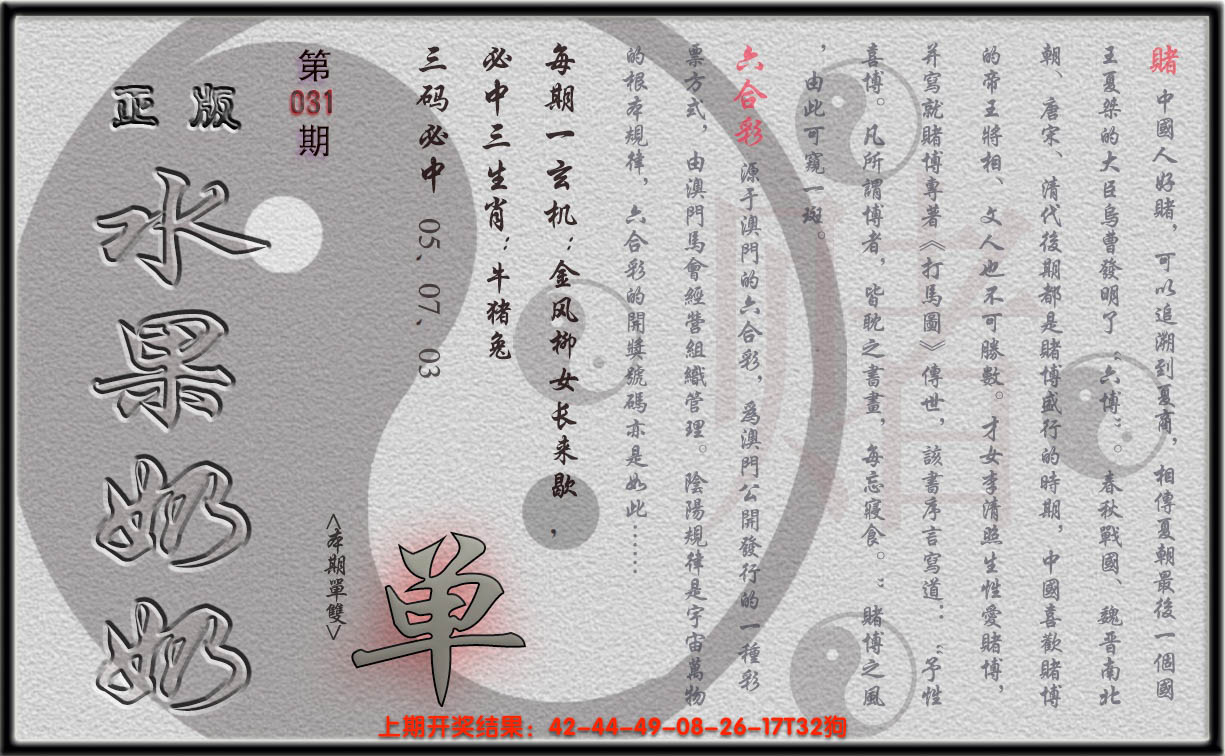 賭 中國人好賭，可以追溯到夏商，相傳夏朝最後一個國
王夏桀的大臣烏曹發明了“六博”。春秋戰國、魏晋南北
朝、唐宋、清代後期都是賭博盛行的時期，中國喜歡賭博
的帝王將相、文人也不可勝數。才女李清照生性愛賭博，
并寫就賭博專著《打馬圖》傳世，該書序言寫道：“予性
喜博。凡所謂博者，皆耽之書畫，每忘寢食。”賭博之風
，由此可窺一斑。
六合彩 源于澳門的六合彩，爲澳門公開發行的一種彩
票方式，由澳門馬會經營組織管理。陰陽規律是宇宙萬物
的根本規律，六合彩的開獎號碼亦是如此……
每期一玄机：金风柳女长来歇，
必中三生肖：牛猪兔
三码必中 05、07、03
第031期
正版
水果奶奶
<本期單雙>
单
賭
上期开奖结果：42-44-49-08-26-17T32狗